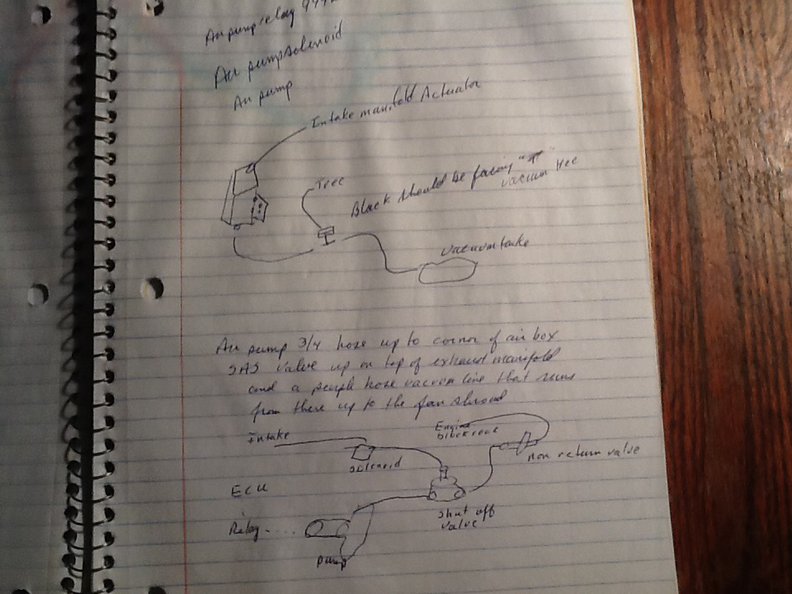 Air pump relay
Air pump solenoid
Air pump
Intake manifold Actuator
Tree
Black should be facing "T"
vacuum tree
vacuum tank
Air pump 3/4 hose up to corner of air box
SAS valve up on top of exhaust manifold
and a people hose vacuum line that runs
from there up to the fan shroud
Intake
Engine
block
solenoid
non return valve
ECU
shut off
valve
Relay ....
pump